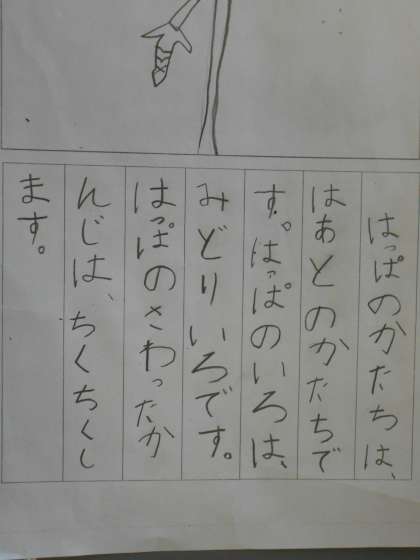 はっぱのかたちは、
はあとのかたちで
す。はっぱのいろは、
みどりいろです。
はっぱのさわったか
んじは、ちくちくし
ます。